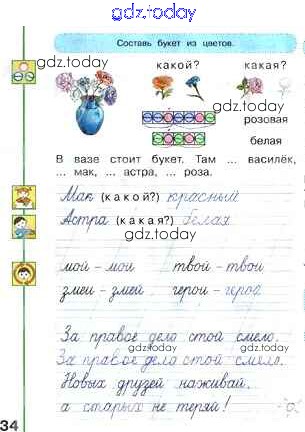 gdz.today
Составь букет из цветов.
gdz.today
какой? какая?
gdz.today
розовая
белая
В вазе стоит букет. Там ... василёк,
... мак, ... астра, ... роза.
gdz.today
Мак (какой?) красный
Астра (какая?) белая
gdz.today
мой – мои твой – твои
змеи – змей герои – герой
gdz.today
За правое дело стой смело.
За правое дело стой смело.
gdz.today
Новых друзей наживай,
а старых не теряй!
34
gdz.today